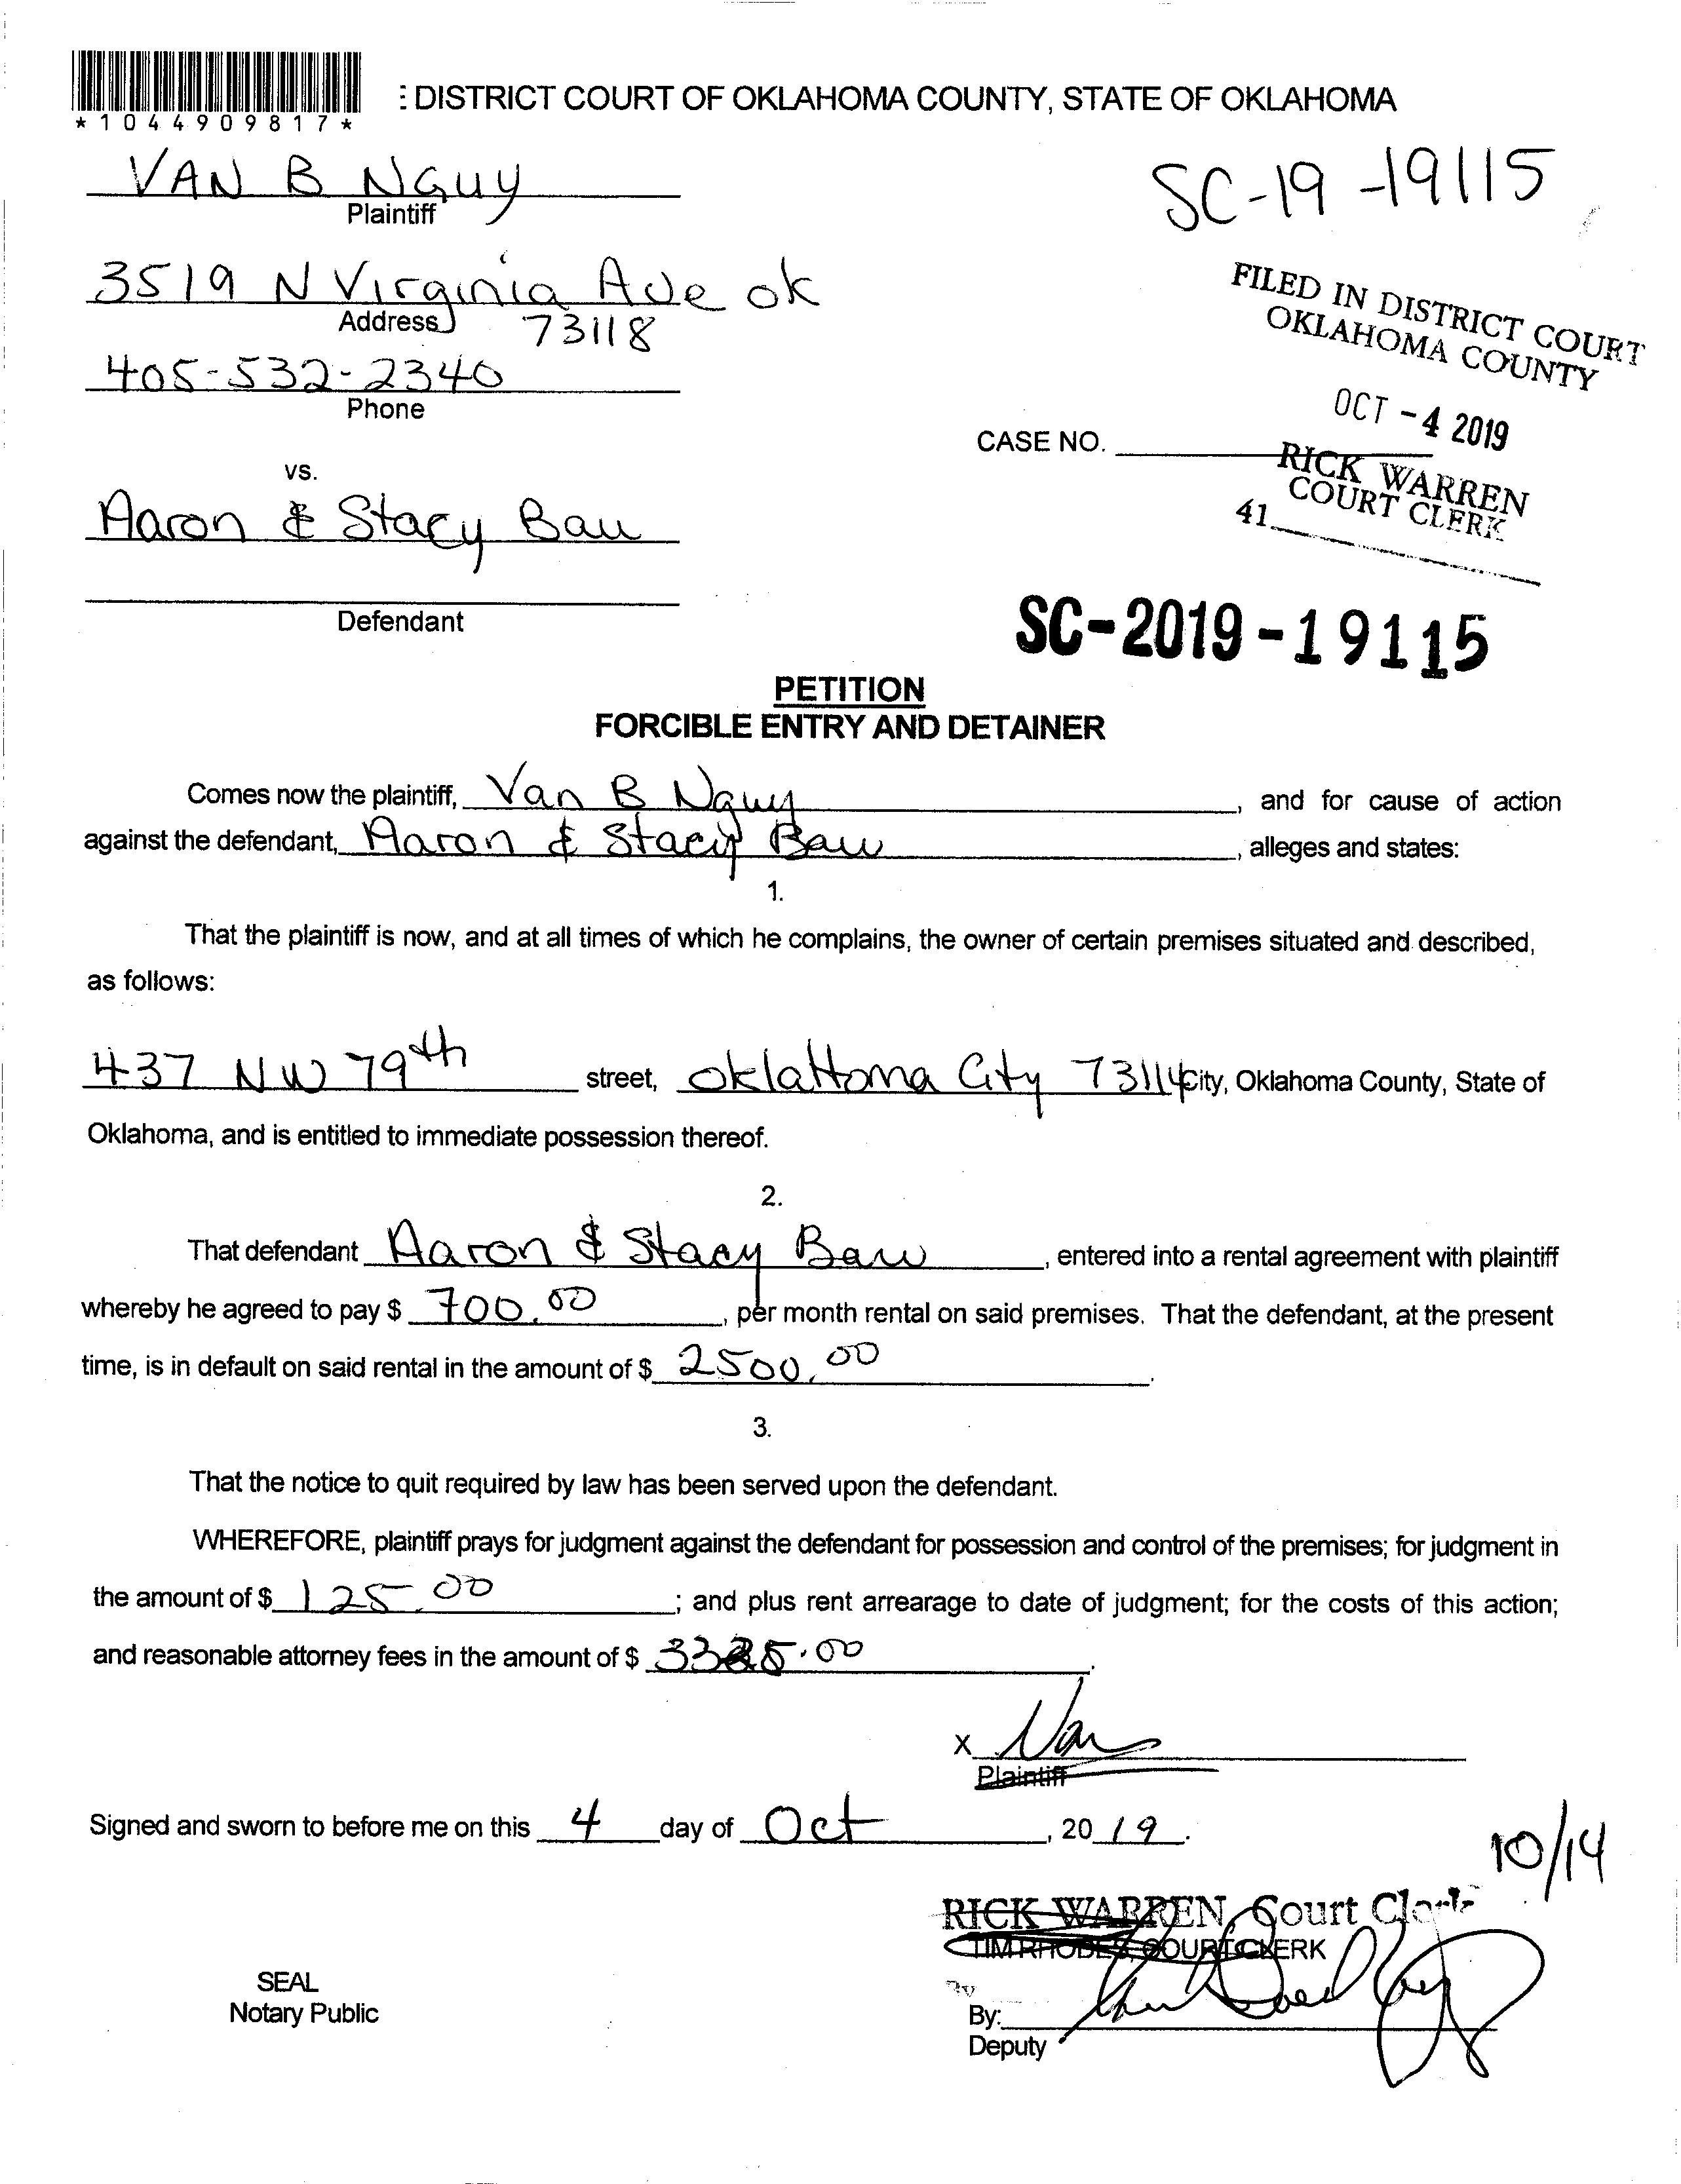 *1044909817*
: DISTRICT COURT OF OKLAHOMA COUNTY, STATE OF OKLAHOMA
VAN B NGUY
Plaintiff
SC-19-19115
3519 N Virginia Ave ok
Address 73118
FILED IN DISTRICT COURT
OKLAHOMA COUNTY
405-532-2340
Phone
OCT -4 2019
CASE NO.
RICK WARREN
COURT CLERK
41
vs.
Aaron & Stacy Bau
Defendant
SC-2019-19115
PETITION
FORCIBLE ENTRY AND DETAINER
Comes now the plaintiff, Van B Nguy, and for cause of action
against the defendant, Aaron & Stacy Baw, alleges and states:
1.
That the plaintiff is now, and at all times of which he complains, the owner of certain premises situated and described,
as follows:
437 NW 79th street, OklaHoma City 73114 City, Oklahoma County, State of
Oklahoma, and is entitled to immediate possession thereof.
2.
That defendant Aaron & Stacy Baw, entered into a rental agreement with plaintiff
whereby he agreed to pay $ 700.00, per month rental on said premises. That the defendant, at the present
time, is in default on said rental in the amount of $ 2500.00.
3.
That the notice to quit required by law has been served upon the defendant.
WHEREFORE, plaintiff prays for judgment against the defendant for possession and control of the premises; for judgment in
the amount of $ 125.00; and plus rent arrearage to date of judgment; for the costs of this action;
and reasonable attorney fees in the amount of $
X Van
Plaintiff
Signed and sworn to before me on this 4 day of Oct, 2019.
10/14
RICK WARREN, Court Clerk
TIM RHODES, COURT CLERK
SEAL
Notary Public
By
By:
Deputy